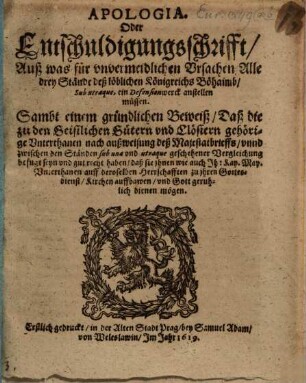 APOLOGIA.
Oder
Entschuldigungsschrifft/
Auß was für vnvermeidlichen Vrsachen Alle
drey Stände deß löblichen Königreichs Böhaimb/
Sub utraque, ein Defensionwerck anstellen
müssen.
Sambt einem gründlichen Beweiß/ Daß die
zu den Geistlichen Gütern vnd Clöstern gehöri-
ge Vnterthanen nach außweisung deß Majestatbrieffs/ vnnd
zwischen den Ständen sub una vnd utraque geschehener Vergleichung
befugt seyn vnd gut recht haben/ daß sie jhnen wie auch Jh: Kay. May.
Vnterthanen auff deroselben Herrschafften zu jhren Gottes-
dienst/ Kirchen auffbawen/ vnd Gott geruh-
lich dienen mögen.
Erstlich gedruckt/ in der Alten Stadt Prag/ bey Samuel Adam/
von Weleslawin/ Im Jahr 1619.